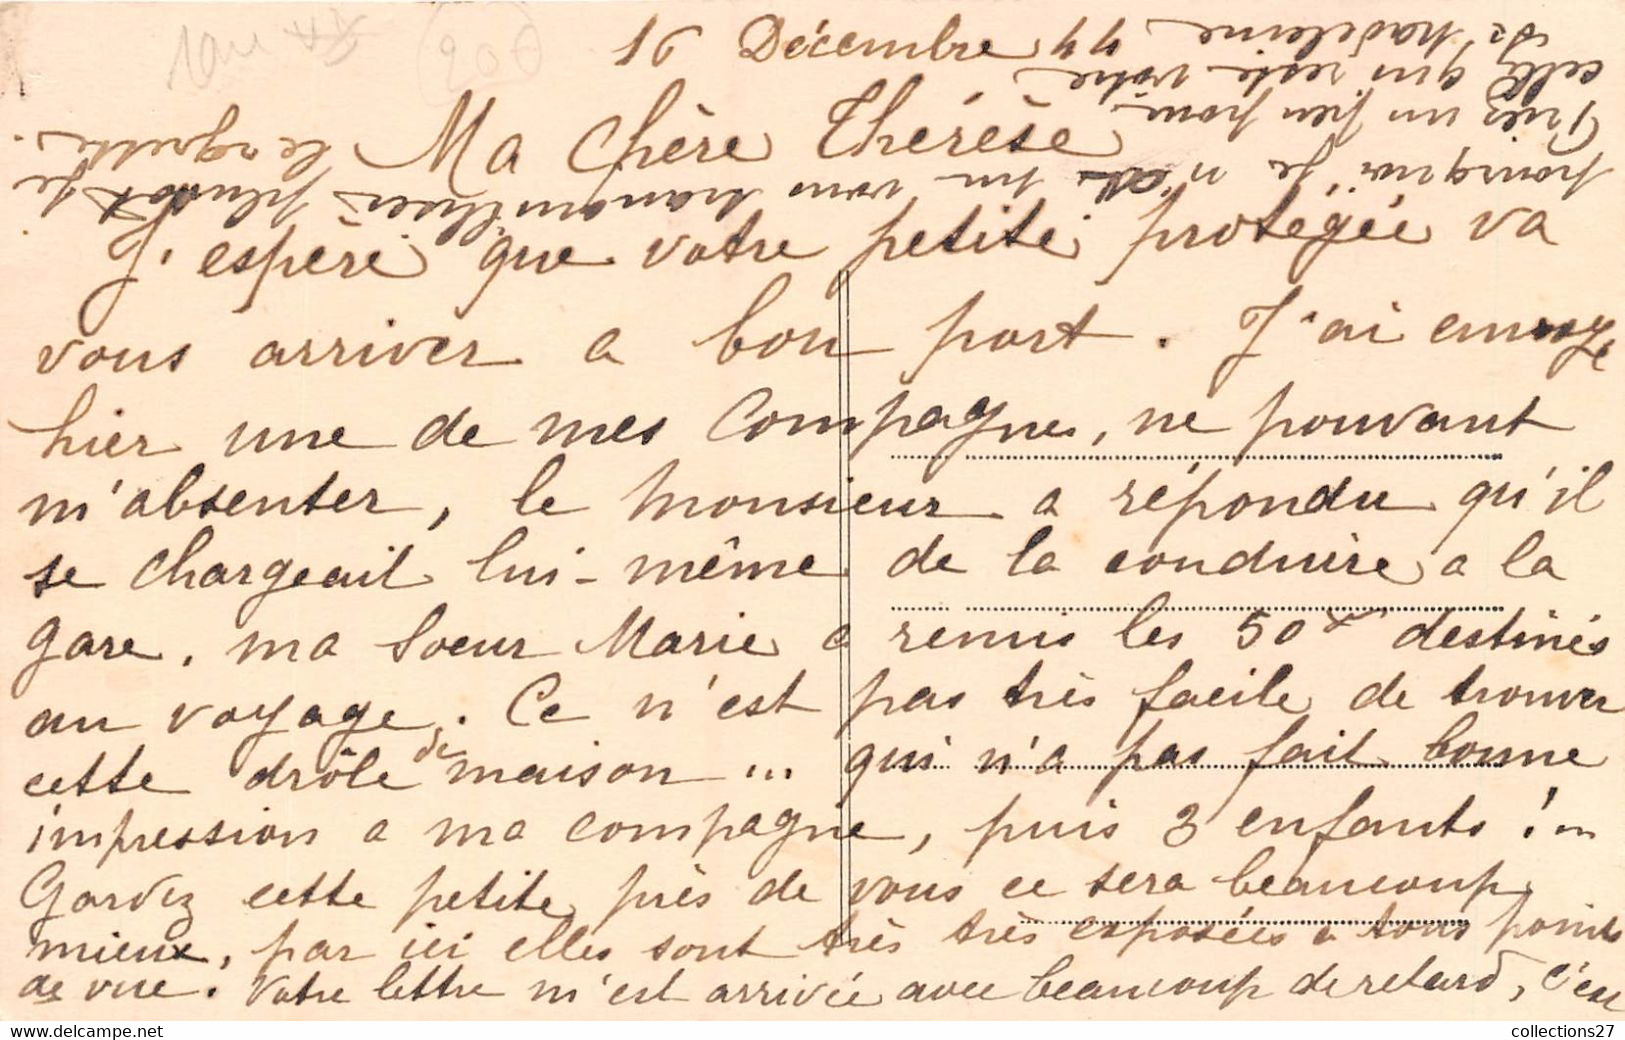 16 Décembre 44
Ma chère Thérèse
J'espère que votre petite protégée va
vous arriver a bon port. J'ai envoyé
hier une de mes Compagnes, ne pouvant
m'absenter, le monsieur a répondu qu'il
se chargeait lui-même de la conduire a la
gare, ma Soeur Marie a remis les 50 destinés
au voyage. Ce n'est pas très facile de trouver
cette drôle de maison ... qui n'a pas fait bonne
impression a ma compagne, puis 3 enfants !..
Gardez cette petite près de vous ce sera beaucoup
mieux, par ici elles sont très très exposées a tous points
de vue. Votre lettre m'est arrivée avec beaucoup de retard, c'est
pourquoi je n'ai pu vous tranquilliser plus tôt je
le regrette.
Priez un peu pour
celle qui reste votre
Sr Madeleine
200
collections27